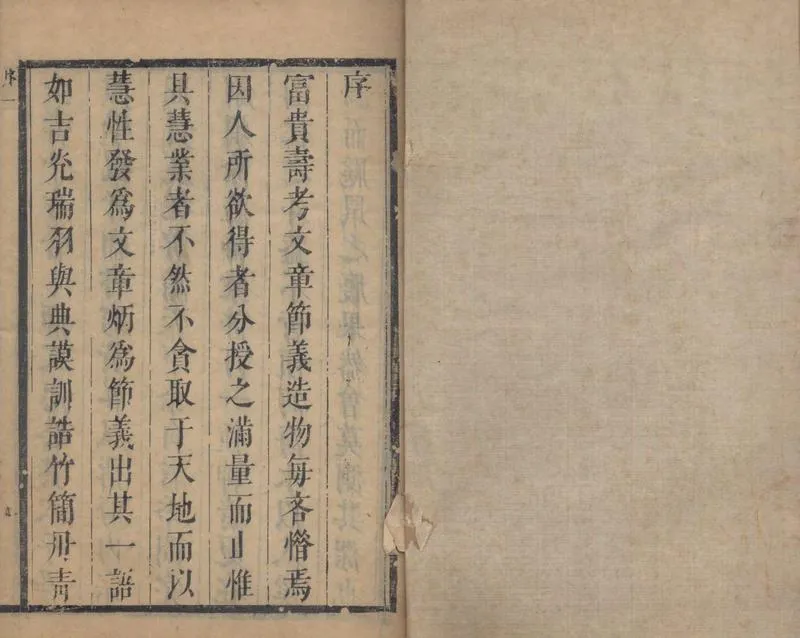 序
富貴壽考文章節義造物每吝惜焉
因人所欲得者分授之滿量而止惟
具慧業者不然不貪取于天地而以
慧性發爲文章炳爲節義出其一語
如吉光瑞羽與典謨訓誥竹簡丹青
序一